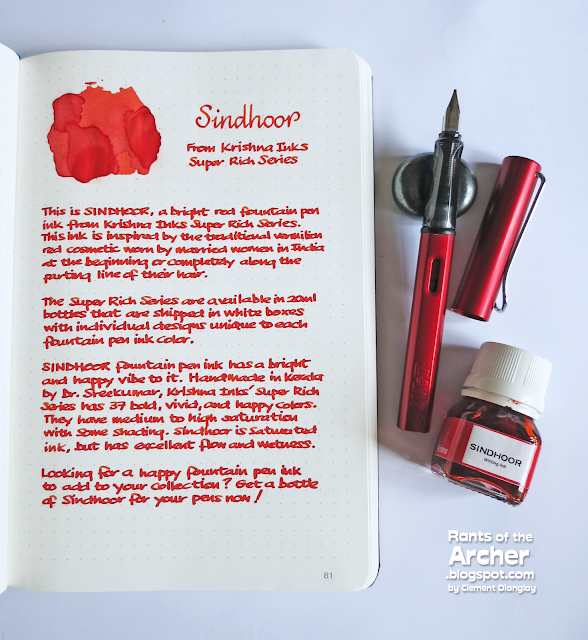 Sindhoor
From Krishna Inks
Super Rich Series
This is SINDHOOR, a bright red fountain pen
ink from Krishna Inks Super Rich Series.
This ink is inspired by the traditional vermilion
red cosmetic worn by married women in India
at the beginning or completely along the
parting line of their hair.
The Super Rich Series are available in 20ml
bottles that are shipped in white boxes
with individual designs unique to each
fountain pen ink color.
SINDHOOR fountain pen ink has a bright
and happy vibe to it. Handmade in Kerala
by Dr. Sreekumar, Krishna Inks' Super Rich
Series has 37 bold, vivid, and happy colors.
They have medium to high saturation
with some shading. Sindhoor is saturated
ink, but has excellent flow and wetness.
Looking for a happy fountain pen ink
to add to your collection? Get a bottle
of Sindhoor for your pens now!
81
LAMY
SINDHOOR
Writing Ink
Rants of the
Archer
.blogspot.com
by Clement Dionglay